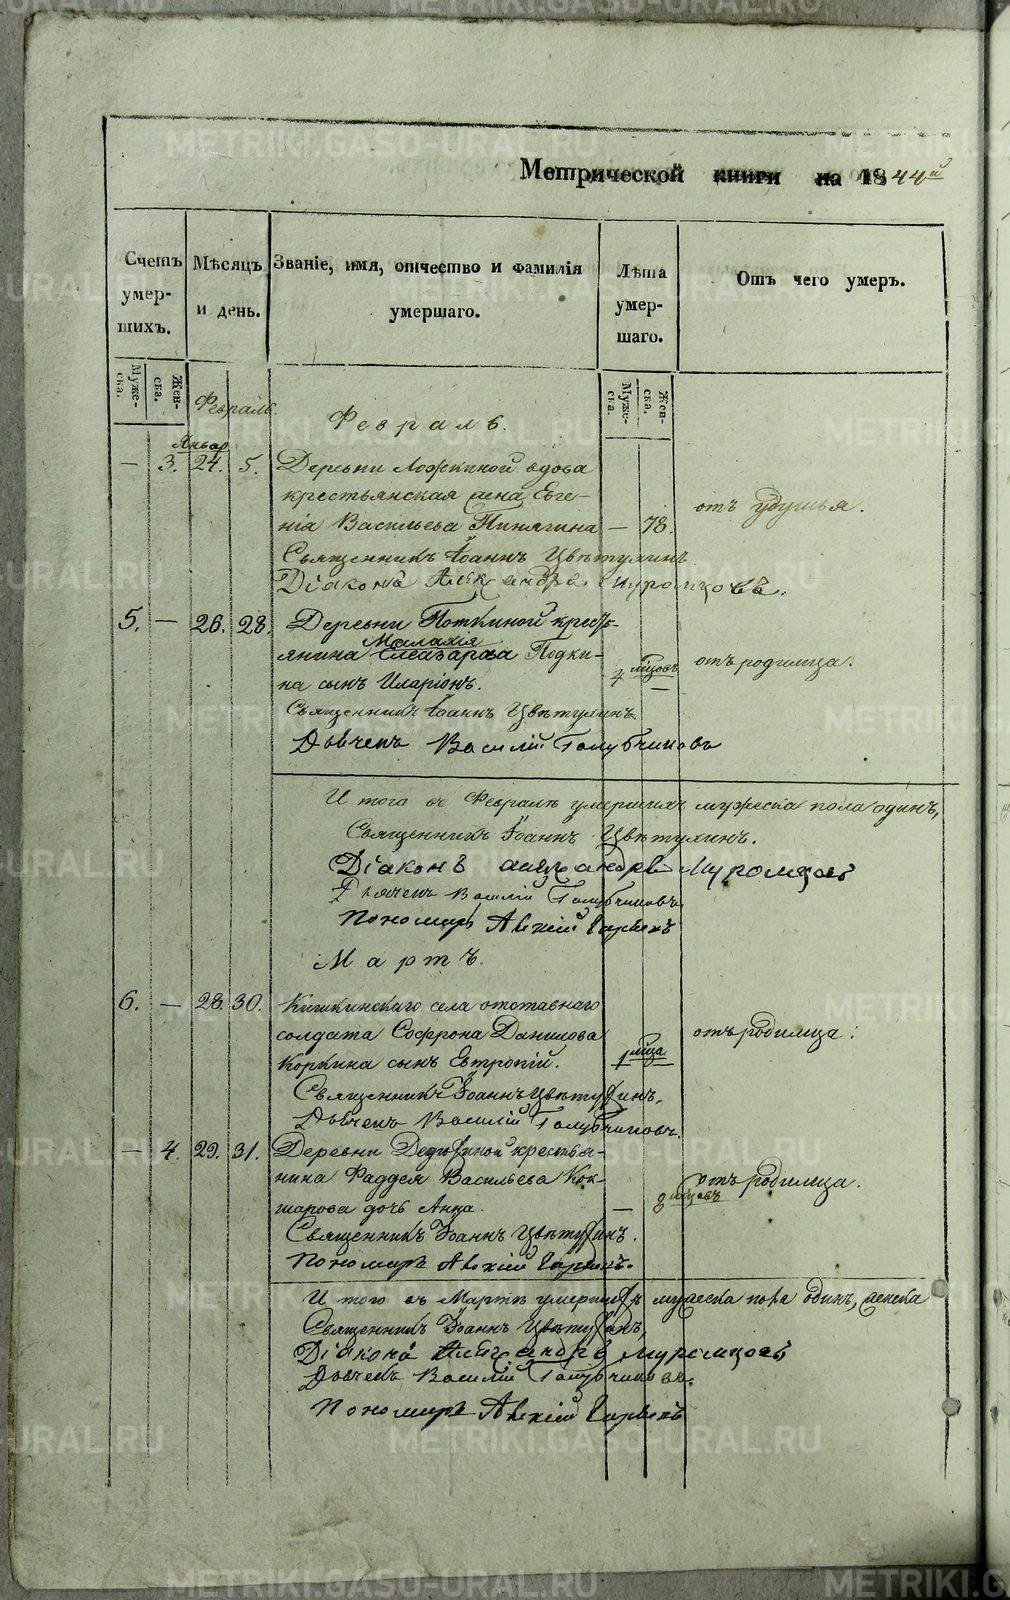 METRIKI.GASO-URAL.RU
Метрической книги на 1844й
Счетъ умер-шихъ.
Мѣсяцъ и день.
Званіе, имя, отчество и фамилія умершаго.
Лѣта умер-шаго.
Отъ чего умеръ.
Муже-ска. Жен-ска.
Муже-ска. Жен-ска.
Февраль
Февраль.
Январ
— 3. 24. 5. Деревни Ложкиной вдова
крестьянская жена Евге-
нія Васильева Пинягина — 78. отъ удушья.
Священникъ Іоаннъ Цвѣтухинъ
Діаконъ Александръ Муромцовъ.
5. — 26. 28. Деревни Поткиной кресть-
Малахія
янина Елеазарова Подки- 4 мѣсяцовъ — отъ родимца.
на сынъ Иларіонъ.
Священникъ Іоаннъ Цвѣтухинъ.
Дьячекъ Василій Голубчиковъ
И того въ Февралѣ умершихъ мужеска пола одинъ,
Священникъ Іоаннъ Цвѣтухинъ.
Діаконъ Александръ Муромцовъ
Дьячекъ Василій Голубчиковъ.
Пономарь
Мартъ.
6. — 28. 30. Кишкинскаго села отставнаго
солдата Софрона Данилова отъ родимца.
Коркина сынъ Евтропій. 1 мѣсяца —
Священникъ Іоаннъ Цвѣтухинъ.
Дьячекъ Василій Голубчиковъ.
— 4. 29. 31. Деревни крестья-
нина Фаддея Васильева Кок- отъ родимца.
шарова дочь Анна. — 2 мѣсяцовъ
Священникъ Іоаннъ Цвѣтухинъ.
Пономарь
И того въ Мартѣ умершихъ мужеска пола одинъ, женска
Священникъ Іоаннъ Цвѣтухинъ,
Діаконъ Александръ Муромцовъ
Дьячекъ Василій Голубчиковъ.
Пономарь